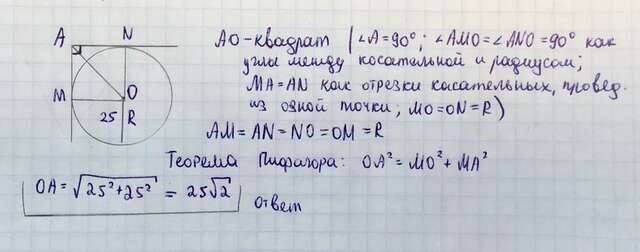 A N
M O
25 R
АО-квадрат (∠A=90°; ∠AMO=∠ANO=90° как
углы между косательной и радиусом;
MA=AN как отрезки касательных, провед.
из одной точки; MO=ON=R)
AM=AN=NO=OM=R
Теорема Пифагора: OA²=MO²+MA²
OA=√25²+25² = 25√2 ответ